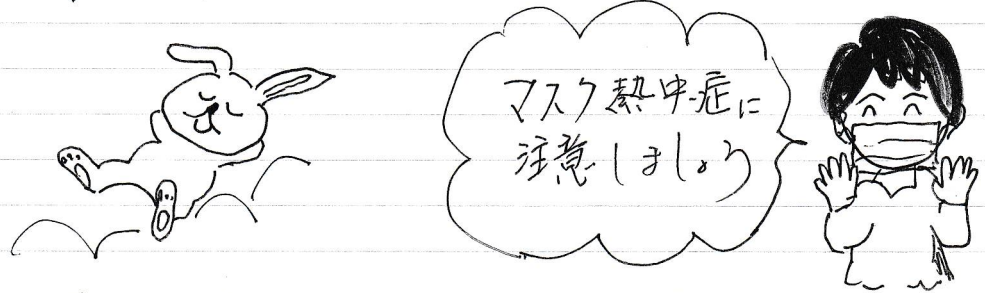 マスク熱中症に
注意しましょう